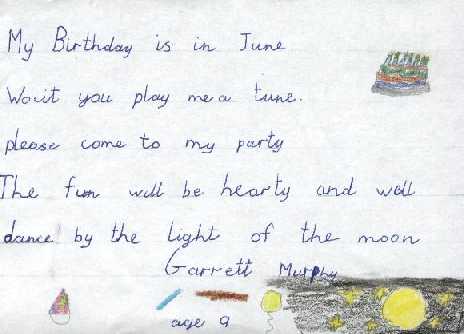 My Birthday is in June
Wo'nt you play me a tune.
please come to my party
The fun will be hearty and will
dance by the light of the moon
Garrett Murphy
age 9